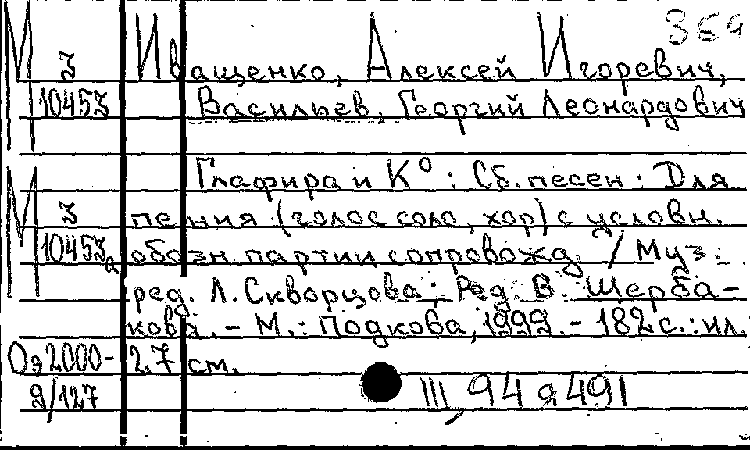 35а
М Иващенко, Алексей Игоревич,
3
10453 Васильев, Георгий Леонардович
Глафира и К° : Сб. песен : Для
М 3 пения (голос соло, хор) с условн.
10453а обозн. партии сопровожд. / Муз.
ред. Л. Скворцова ; Ред. В. Щерба-
кова. - М. : Подкова, 1999. - 182 с. : ил. ;
Оэ2000- 27 см.
9/127 III, 94 я 491